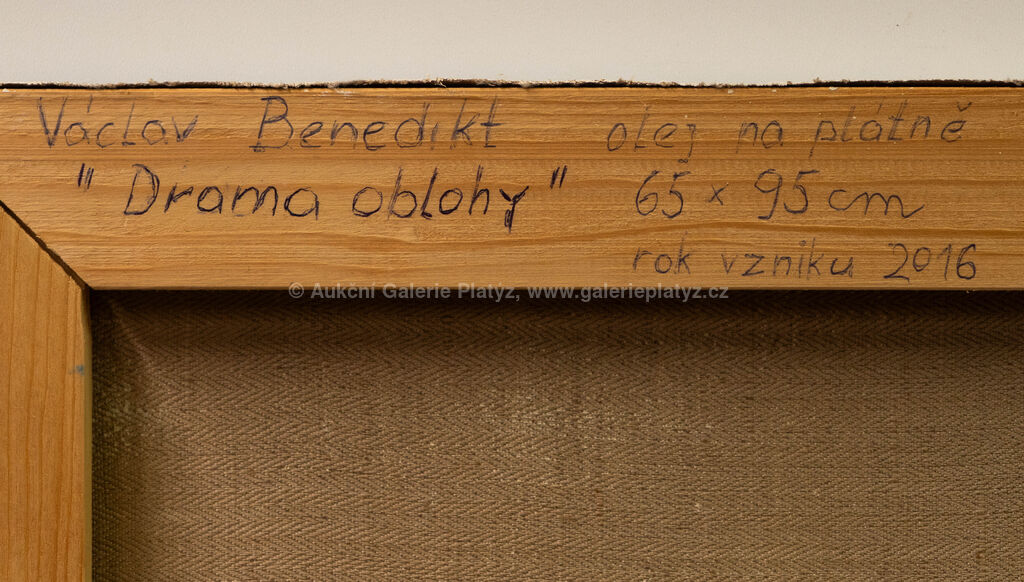 Václav Benedikt olej na plátně
"Drama oblohy" 65 × 95 cm
rok vzniku 2016
© Aukční Galerie Platýz, www.galerieplatyz.cz